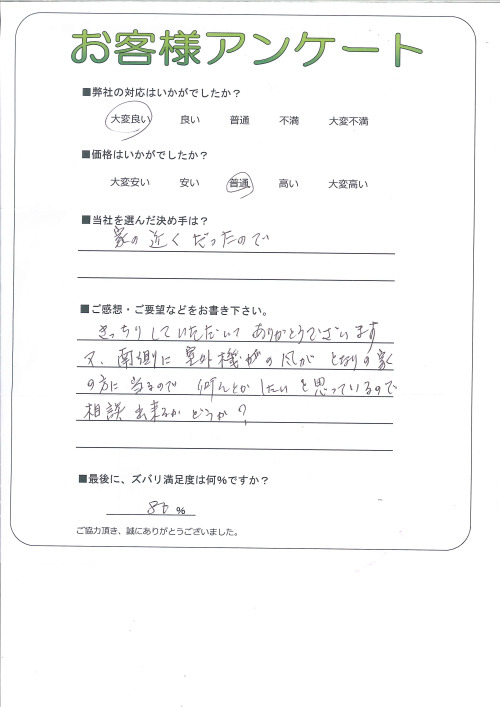 お客様アンケート
■弊社の対応はいかがでしたか？
大変良い 良い 普通 不満 大変不満
■価格はいかがでしたか？
大変安い 安い 普通 高い 大変高い
■当社を選んだ決め手は？
家の近くだったので
■ご感想・ご要望などをお書き下さい。
きっちりしていただいて ありがとうございます
又、南側に 室外機がの風が となりの家
の方に当るので 何んとかしたいと思っているので
相談出来るかどうか？
■最後に、ズバリ満足度は何％ですか？
％
ご協力頂き、誠にありがとうございました。